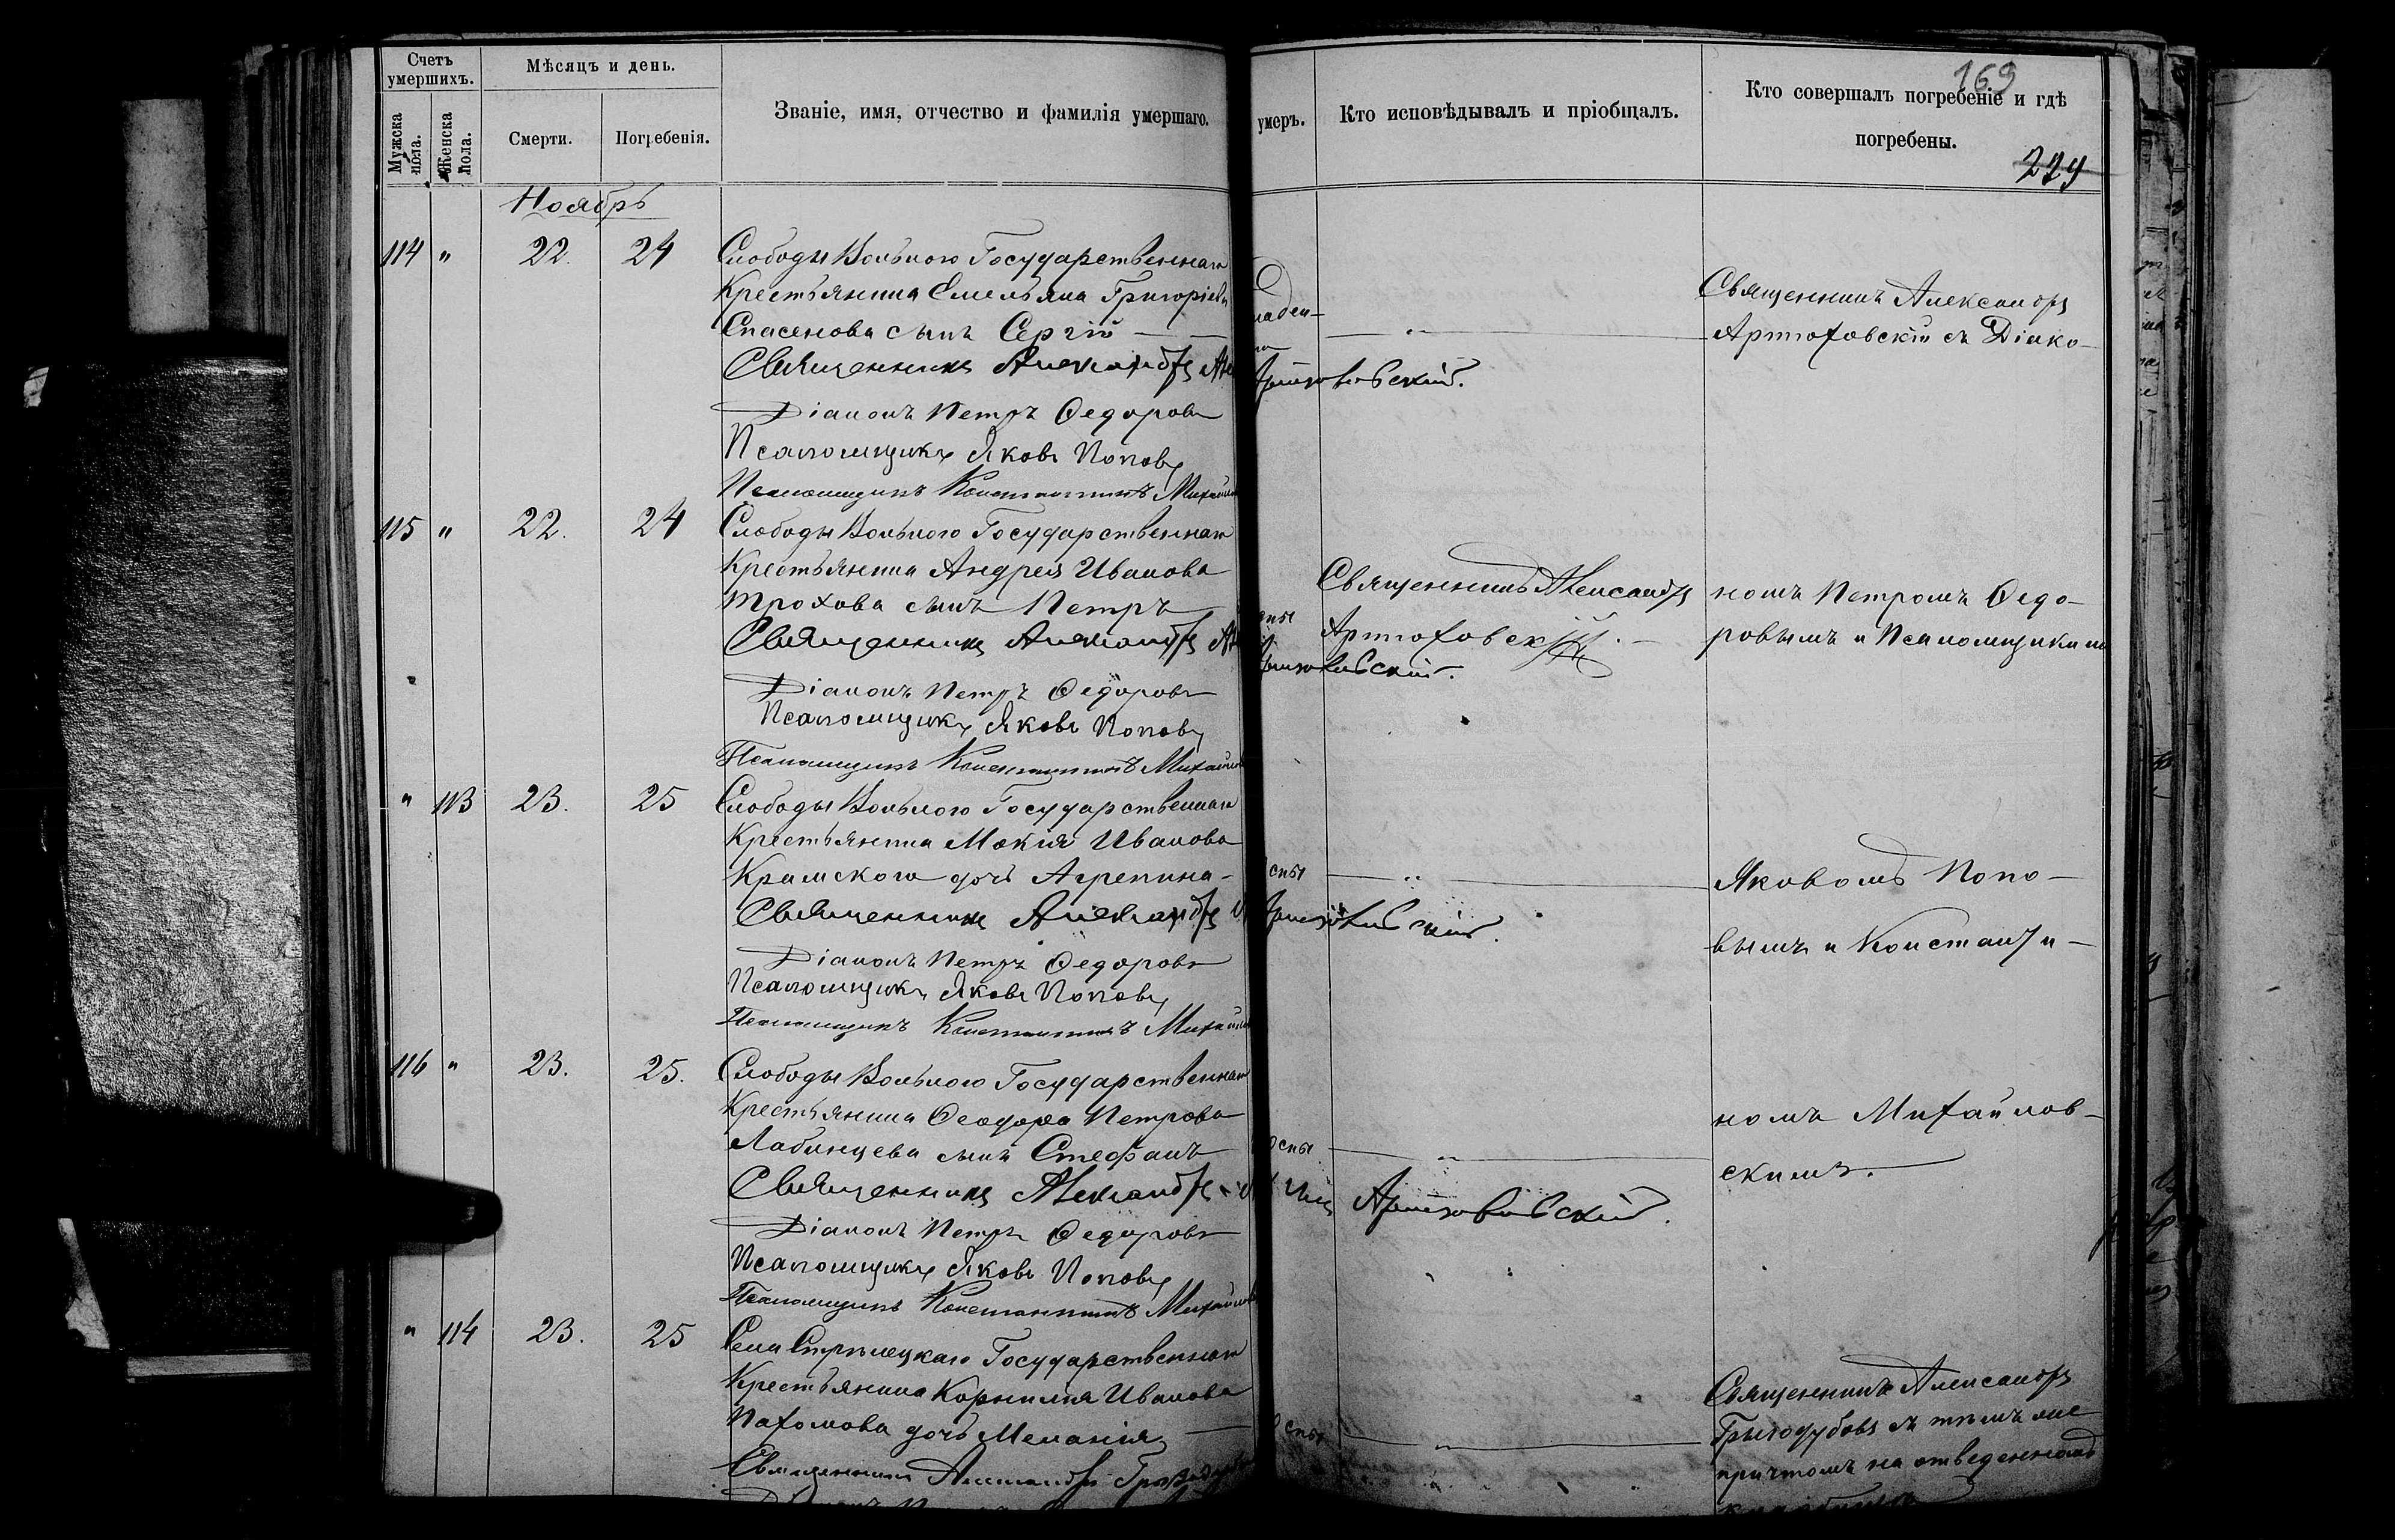 Счетъ умершихъ.
Мужска пола.
Женска пола.
Мѣсяцъ и день.
Смерти.
Погребенія.
Званіе, имя, отчество и фамилія умершаго.
умеръ.
Кто исповѣдывалъ и пріобщалъ.
169
Кто совершалъ погребеніе и гдѣ
погребены.
Ноябрь
114 " 22. 24 Слободы Вольного Государственнаго
Крестьянина Емельяна Григоріева
Спасенова сынъ Сергій
Священникъ Александръ Артюховскій.
Діаконъ Петръ Ѳедоровъ
Псаломщикъ Яковъ Поповъ
Псаломщикъ Константинъ Михайлов
Священникъ Александръ
Артюховскій съ Діако-
115 " 22. 24 Слободы Вольного Государственнаго
Крестьянина Андрея Иванова
Трохова сынъ Петръ
Священникъ Александръ Артюховскій.
Діаконъ Петръ Ѳедоровъ
Псаломщикъ Яковъ Поповъ
Псаломщикъ Константинъ Михайлов
Священникъ Александръ
Артюховскій.
номъ Петромъ Ѳедо-
ровымъ и Псаломщиками
" 113 23. 25 Слободы Вольного Государственнаго
Крестьянина Мокія Иванова
Крамского дочь Агрепина
Священникъ Александръ Артюховскій.
Діаконъ Петръ Ѳедоровъ
Псаломщикъ Яковъ Поповъ
Псаломщикъ Константинъ Михайлов
оспы
Яковомъ Попо-
вымъ и Константи-
116 " 23. 25. Слободы Вольного Государственнаго
Крестьянина Ѳеодора Петрова
Лабинцева сынъ Стефанъ
Священникъ Александръ Артюховскій.
Діаконъ Петръ Ѳедоровъ
Псаломщикъ Яковъ Поповъ
Псаломщикъ Константинъ Михайлов
оспы
номъ Михайлов-
скимъ.
" 114 23. 25 Села Стрѣлецкаго Государственнаго
Крестьянина Корнилія Иванова
Пахомова дочь Меланія
Священникъ Александръ
оспы
Священникъ Александръ
съ тѣмъ же
причтомъ на отведенномъ
кладбищѣ